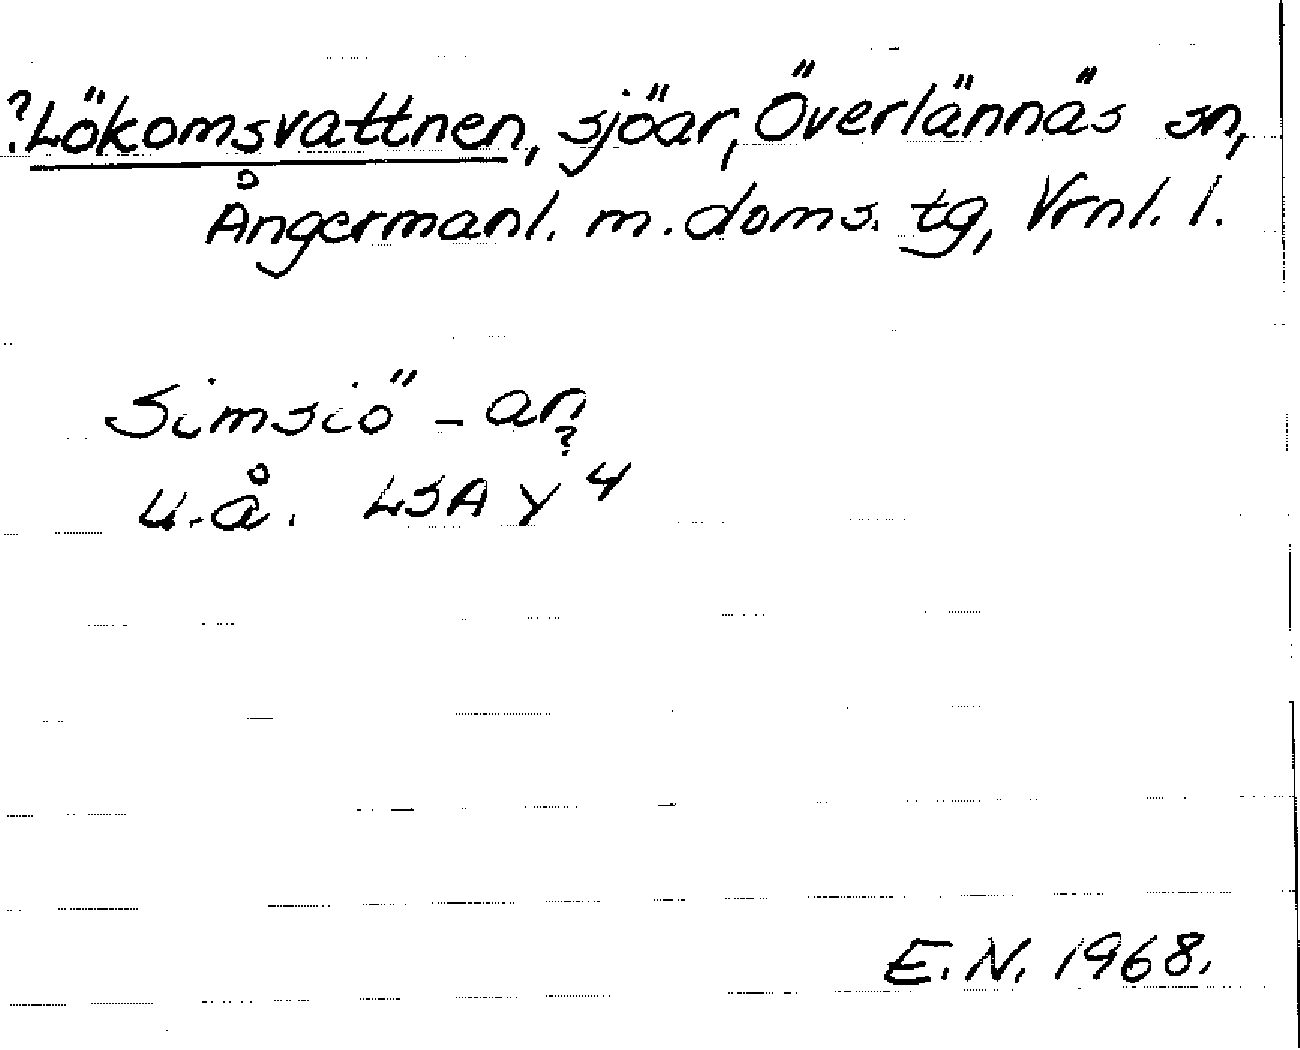 ?Lökomsvattnen, sjöar, Överlännäs sn,
Ångermanl. m. doms. tg, Vrnl. l.
Simsiö - an?
u.å. LSA Y 4
E.N. 1968.